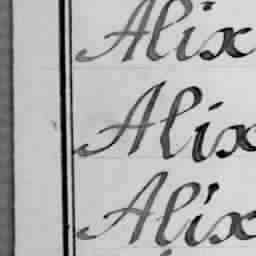 Alix
Alix
Alix